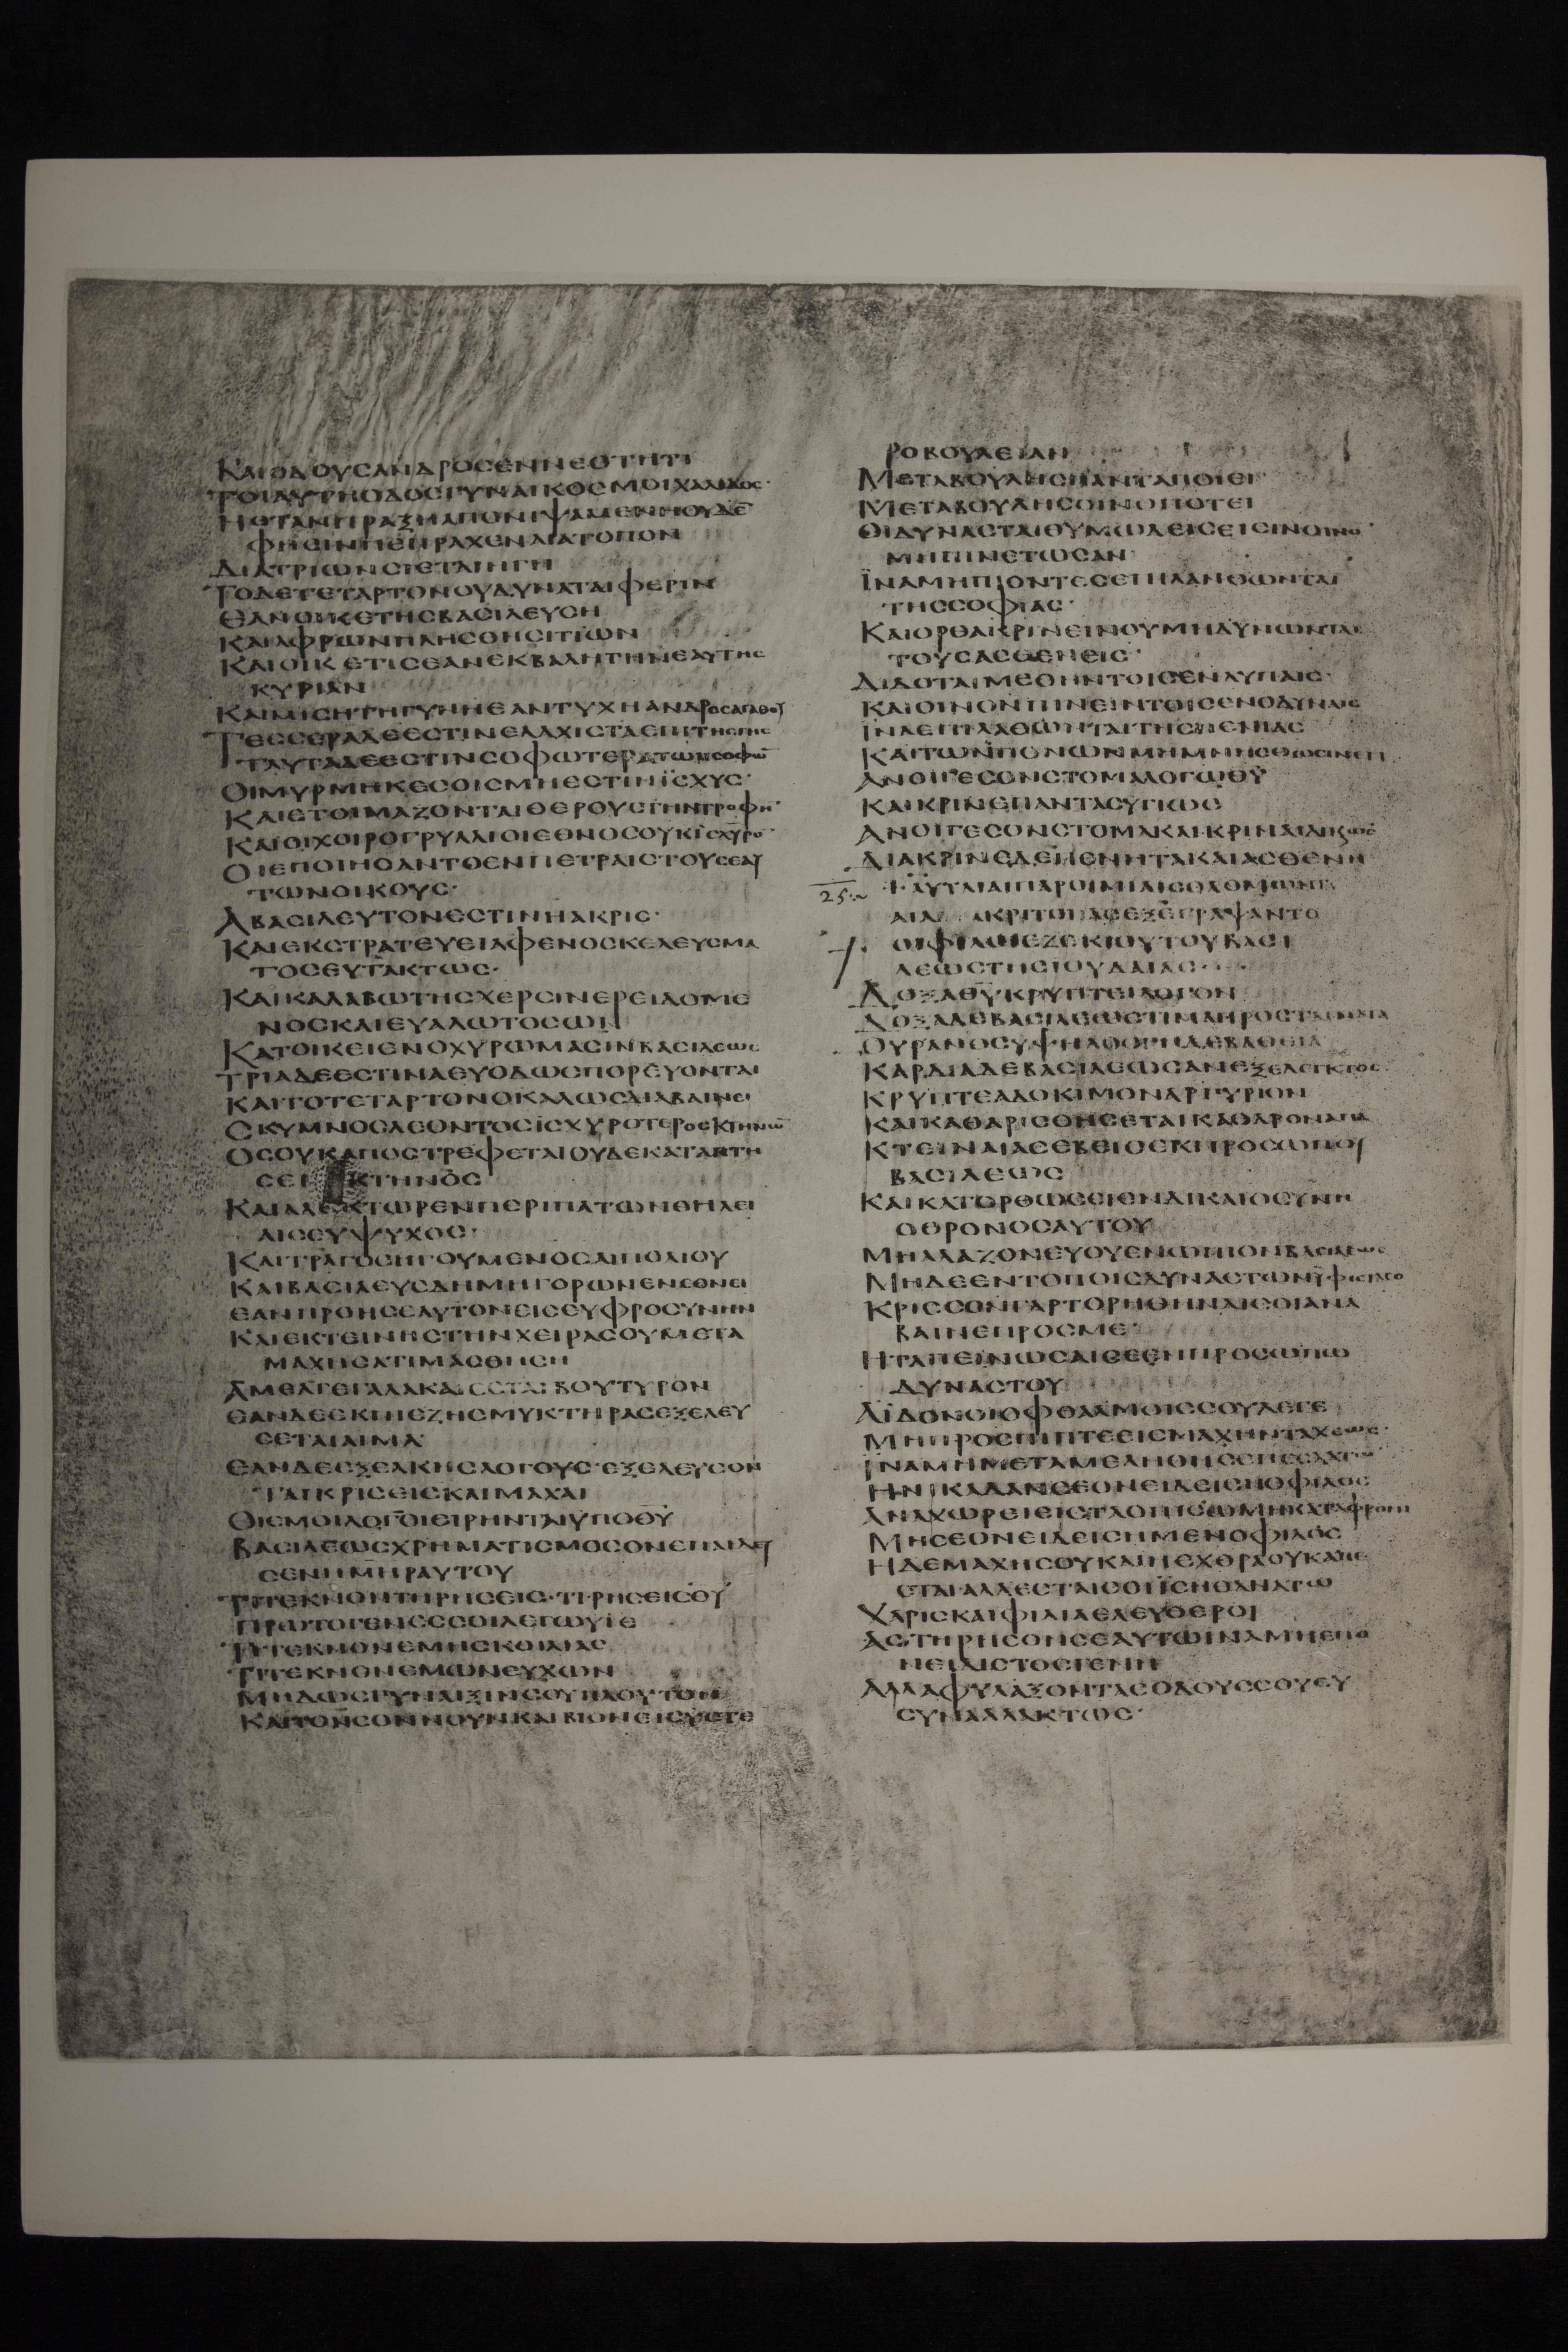 ΚΑΙΟΔΟΥCΑΝΔΡΟCΕΝΝΕΟΤΗΤΙ
ΤΟΙΑΥΤΗΟΔΟCΓΥΝΑΙΚΟCΜΟΙΧΑΛΙΔΟC·
ΗΟΤΑΝΠΡΑΞΗΑΠΟΝΙΨΑΜΕΝΗΟΥΔΕ̅
ΦΗCΙΝΠΕΠΡΑΧΕΝΑΙΑΤΟΠΟΝ
ΔΙΑΤΡΙΩΝCΙΕΤΑΙΗΓΗ
ΤΟΔΕΤΕΤΑΡΤΟΝΟΥΔΥΝΑΤΑΙΦΕΡΙΝ
ΕΑΝΟΙΚΕΤΗCΒΑCΙΛΕΥCΗ
ΚΑΙΑΦΡΩΝΠΛΗCΘΗCΙΤΙΩΝ
ΚΑΙΟΙΚΕΤΙCΕΑΝΕΚΒΑΛΗΤΗΝΕΑΥΤΗC
ΚΥΡΙΑΝ
ΚΑΙΜΙCΗΤΗΓΥΝΗΕΑΝΤΥΧΗΑΝΔΡΟCΑΓΑΘΟΥ
ΤΕCCΕΡΑΔΕΕCΤΙΝΕΛΑΧΙCΤΑΕΠΙΤΗCΓΗC
ΤΑΥΤΑΔΕΕCΤΙΝCΟΦΩΤΕΡΑΤΩΝCΟΦΩ̅
ΟΙΜΥΡΜΗΚΕCΟΙCΜΗΕCΤΙΝΪCΧΥC·
ΚΑΙΕΤΟΙΜΑΖΟΝΤΑΙΘΕΡΟΥCΤΗΝΤΡΟΦΗ̅·
ΚΑΙΟΙΧΟΙΡΟΓΡΥΛΛΙΟΙΕΘΝΟCΟΥΚΙCΧΥΡΟ̅·
ΟΙΕΠΟΙΗCΑΝΤΟΕΝΠΕΤΡΑΙCΤΟΥCΕΑΥ
ΤΩΝΟΙΚΟΥC·
ΑΒΑCΙΛΕΥΤΟΝΕCΤΙΝΗΑΚΡΙC·
ΚΑΙΕΚCΤΡΑΤΕΥΕΙΑΦΕΝΟCΚΕΛΕΥCΜΑ
ΤΟCΕΥΤΑΚΤΩC·
ΚΑΙΚΑΛΑΒΩΤΗCΧΕΡCΙΝΕΡΕΙΔΟΜΕ
ΝΟCΚΑΙΕΥΑΛΩΤΟCΩΝ
ΚΑΤΟΙΚΕΙΕΝΟΧΥΡΩΜΑCΙΝΒΑCΙΛΕΩC
ΤΡΙΑΔΕΕCΤΙΝΑΕΥΟΔΩCΠΟΡΕΥΟΝΤΑΙ
ΚΑΙΤΟΤΕΤΑΡΤΟΝΟΚΑΛΩCΔΙΑΒΑΙΝΕΙ
CΚΥΜΝΟCΛΕΟΝΤΟCΙCΧΥΡΟΤΕΡΟCΚΤΗΝΩ̅
ΟCΟΥΚΑΠΟCΤΡΕΦΕΤΑΙΟΥΔΕΚΑΤΑΠΤΗ
CΕΙ ΚΤΗΝΟC
ΚΑΙΑΛΕΚΤΩΡΕΝΠΕΡΙΠΑΤΩΝΘΗΛΕΙ
ΑΙCΕΥΨΥΧΟC·
ΚΑΙΤΡΑΓΟCΗΓΟΥΜΕΝΟCΑΙΠΟΛΙΟΥ
ΚΑΙΒΑCΙΛΕΥCΔΗΜΗΓΟΡΩΝΕΝΕΘΝΕΙ
ΕΑΝΠΡΟΗCΕΑΥΤΟΝΕΙCΕΥΦΡΟCΥΝΗΝ
ΚΑΙΕΚΤΕΙΝΗCΤΗΝΧΕΙΡΑCΟΥΜΕΤΑ
ΜΑΧΗCΑΤΙΜΑCΘΗCΗ
ΑΜΕΛΓΕΓΑΛΑΚΑΙΕCΤΑΙΒΟΥΤΥΡΟΝ
ΕΑΝΔΕΕΚΠΙΕΖΗCΜΥΚΤΗΡΑCΕΞΕΛΕΥ
CΕΤΑΙΑΙΜΑ·
ΕΑΝΔΕΕΞΕΛΚΗCΛΟΓΟΥC·ΕΞΕΛΕΥCΟΝ
ΤΑΙΚΡΙCΕΙCΚΑΙΜΑΧΑΙ
ΟΙΕΜΟΙΛΟΓΟΙΕΙΡΗΝΤΑΙΥΠΟΘΥ̅
ΒΑCΙΛΕΩCΧΡΗΜΑΤΙCΜΟCΟΝΕΠΑΙΔΕΥ
CΕΝΗΜΗΡΑΥΤΟΥ
ΤΙΤΕΚΝΟΝΤΗΡΗCΕΙC·ΤΙ·ΡΗCΕΙCΘΥ̅
ΠΡΩΤΟΓΕΝΕCCΟΙΛΕΓΩΥΙΕ
ΤΙΤΕΚΝΟΝΕΜΗCΚΟΙΛΙΑC
ΤΙΤΕΚΝΟΝΕΜΩΝΕΥΧΩΝ
ΜΗΔΩCΓΥΝΑΙΞΙΝCΟΥΠΛΟΥΤΟΝ
ΚΑΙΤΟΝCΟΝΝΟΥΝΚΑΙΒΙΟΝΕΙCΥCΤΕ
ΡΟΒΟΥΛΕΙΑΝ
ΜΕΤΑΒΟΥΛΗCΠΑΝΤΑΠΟΙΕΙ
ΜΕΤΑΒΟΥΛΗCΟΙΝΟΠΟΤΕΙ
ΟΙΔΥΝΑCΤΑΙΘΥΜΩΔΕΙCΕΙCΙΝΟΙΝΟ̅·
ΜΗΠΙΝΕΤΩCΑΝ·
ΪΝΑΜΗΠΙΟΝΤΕCΕΠΙΛΑΘΩΝΤΑΙ
ΤΗCCΟΦΙΑC·
ΚΑΙΟΡΘΑΚΡΙΝΕΙΝΟΥΜΗΔΥΝΩΝΤΑΙ
ΤΟΥCΑCΘΕΝΕΙC·
ΔΙΔΟΤΑΙΜΕΘΗΝΤΟΙCΕΝΛΥΠΑΙC·
ΚΑΙΟΙΝΟΝΠΙΝΕΙΝΤΟΙCΕΝΟΔΥΝΑΙC
ΙΝΑΕΠΙΛΑΘΩΝΤΑΙΤΗCΠΕΝΙΑC
ΚΑΙΤΩΝΠΟΝΩΝΜΗΜΝΗCΘΩCΙΝΕΤΙ
ΑΝΟΙΓΕCΟΝCΤΟΜΑΛΟΓΩΘΥ̅
ΚΑΙΚΡΙΝΕΠΑΝΤΑCΥΓΙΩC
ΑΝΟΙΓΕCΟΝCΤΟΜΑΚΑΙΚΡΙΝΑΙΔΙΚΕΩC
ΔΙΑΚΡΙΝΕΔΕΠΕΝΗΤΑΚΑΙΑCΘΕΝΗ
25
ΑΥΤΑΙΑΙΠΑΡΟΙΜΙΑΙCΟΛΟΜΩΝΤ
ΑΙΑΔΙΑΚΡΙΤΟΙΑCΕΞΕΓΡΑΨΑΝΤΟ
ΟΙΦΙΛΟΙΕΖΕΚΙΟΥΤΟΥΒΑCΙ
ΛΕΩCΤΗCΙΟΥΔΑΙΑC
ΔΟΞΑΘΥ̅ΚΡΥΠΤΕΙΛΟΓΟΝ
ΔΟΞΑΔΕΒΑCΙΛΕΩCΤΙΜΑΠΡΟCΤΑΓΜΑΤΑ
ΟΥΡΑΝΟCΥΨΗΛΟCΓΗΔΕΒΑΘΕΙΑ
ΚΑΡΔΙΑΔΕΒΑCΙΛΕΩCΑΝΕΞΕΛΕΓΚΤΟC
ΚΡΥΠΤΕΑΔΟΚΙΜΟΝΑΡΓΥΡΙΟΝ
ΚΑΙΚΑΘΑΡΙCΘΗCΕΤΑΙΚΑΘΑΡΟΝΑΠΑ
ΚΤΕΙΝΑΙΑCΕΒΕΙCΕΚΠΡΟCΩΠΟΥ
ΒΑCΙΛΕΩC
ΚΑΙΚΑΤΟΡΘΩCΕΙΕΝΔΙΚΑΙΟCΥΝΗ
ΟΘΡΟΝΟCΑΥΤΟΥ
ΜΗΑΛΑΖΟΝΕΥΟΥΕΝΩΠΙΟΝΒΑCΙΛΕΩC
ΜΗΔΕΕΝΤΟΠΟΙCΔΥΝΑCΤΩΝΥΦΙCΤΑCΟ
ΚΡΙCCΟΝΓΑΡΤΟΡΗΘΗΝΑΙCΟΙΑΝΑ
ΒΑΙΝΕΠΡΟCΜΕ·
ΗΤΑΠΕΙΝΩCΑΙCΕΕΝΠΡΟCΩΠΩ
ΔΥΝΑCΤΟΥ
ΑΪΔΟΝΟΙΟΦΘΑΛΜΟΙCΟΥΛΕΓΕ
ΜΗΠΡΟCΠΙΠΤΕΕΙCΜΑΧΗΝΤΑΧΕΩC·
ΙΝΑΜΗΜΕΤΑΜΕΛΗΘΗCΕΠΕCΧΑΤΩ̅
ΗΝΙΚΑΑΝCΕΟΝΕΙΔΕΙCΗΟΦΙΛΟC
ΑΝΑΧΩΡΕΙΕΙCΤΑΟΠΙCΩΜΗΚΑΤΑΦΡΟΝΙ
ΜΗCΕΟΝΕΙΔΕΙCΗΜΕΝΟΦΙΛΟC
ΗΔΕΜΑΧΗCΟΥΚΑΙΗΕΧΘΡΑΟΥΚΑΠΕ
CΤΑΙΑΛΛΕCΤΑΙCΟΙΪCΗΘΑΝΑΤΩ
ΧΑΡΙCΚΑΙΦΙΛΙΑΕΛΕΥΘΕΡΟΙ
ΑCΤΗΡΗCΟΝCΕΑΥΤΩΙΝΑΜΗΕΠΟ
ΝΕΙΔΙCΤΟCΓΕΝΗ
ΑΛΛΑΦΥΛΑΞΟΝΤΑCΟΔΟΥCCΟΥΕΥ
CΥΝΑΛΛΑΚΤΩC·